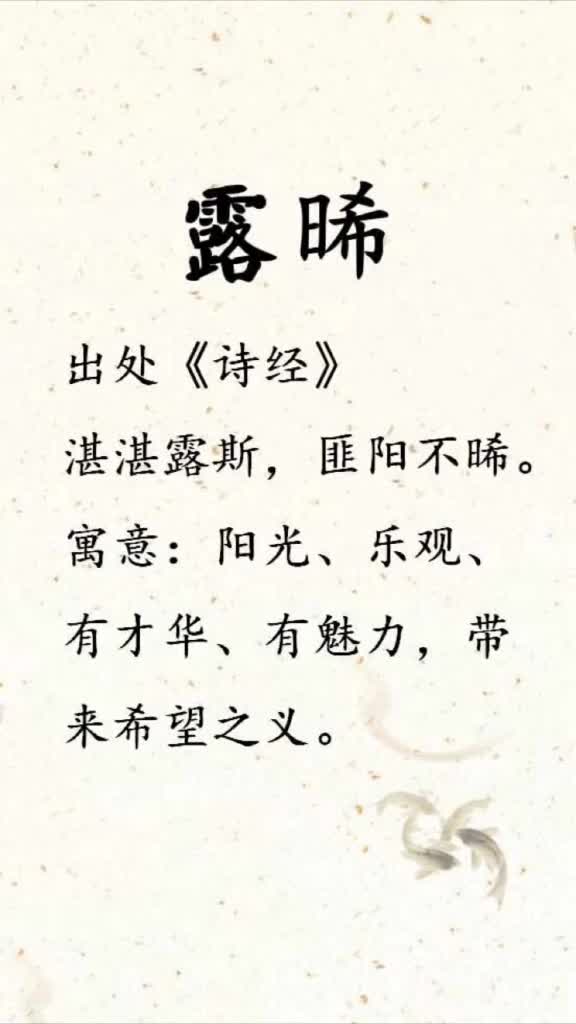 露晞
出处《诗经》
湛湛露斯，匪阳不晞。
寓意：阳光、乐观、
有才华、有魅力，带
来希望之义。